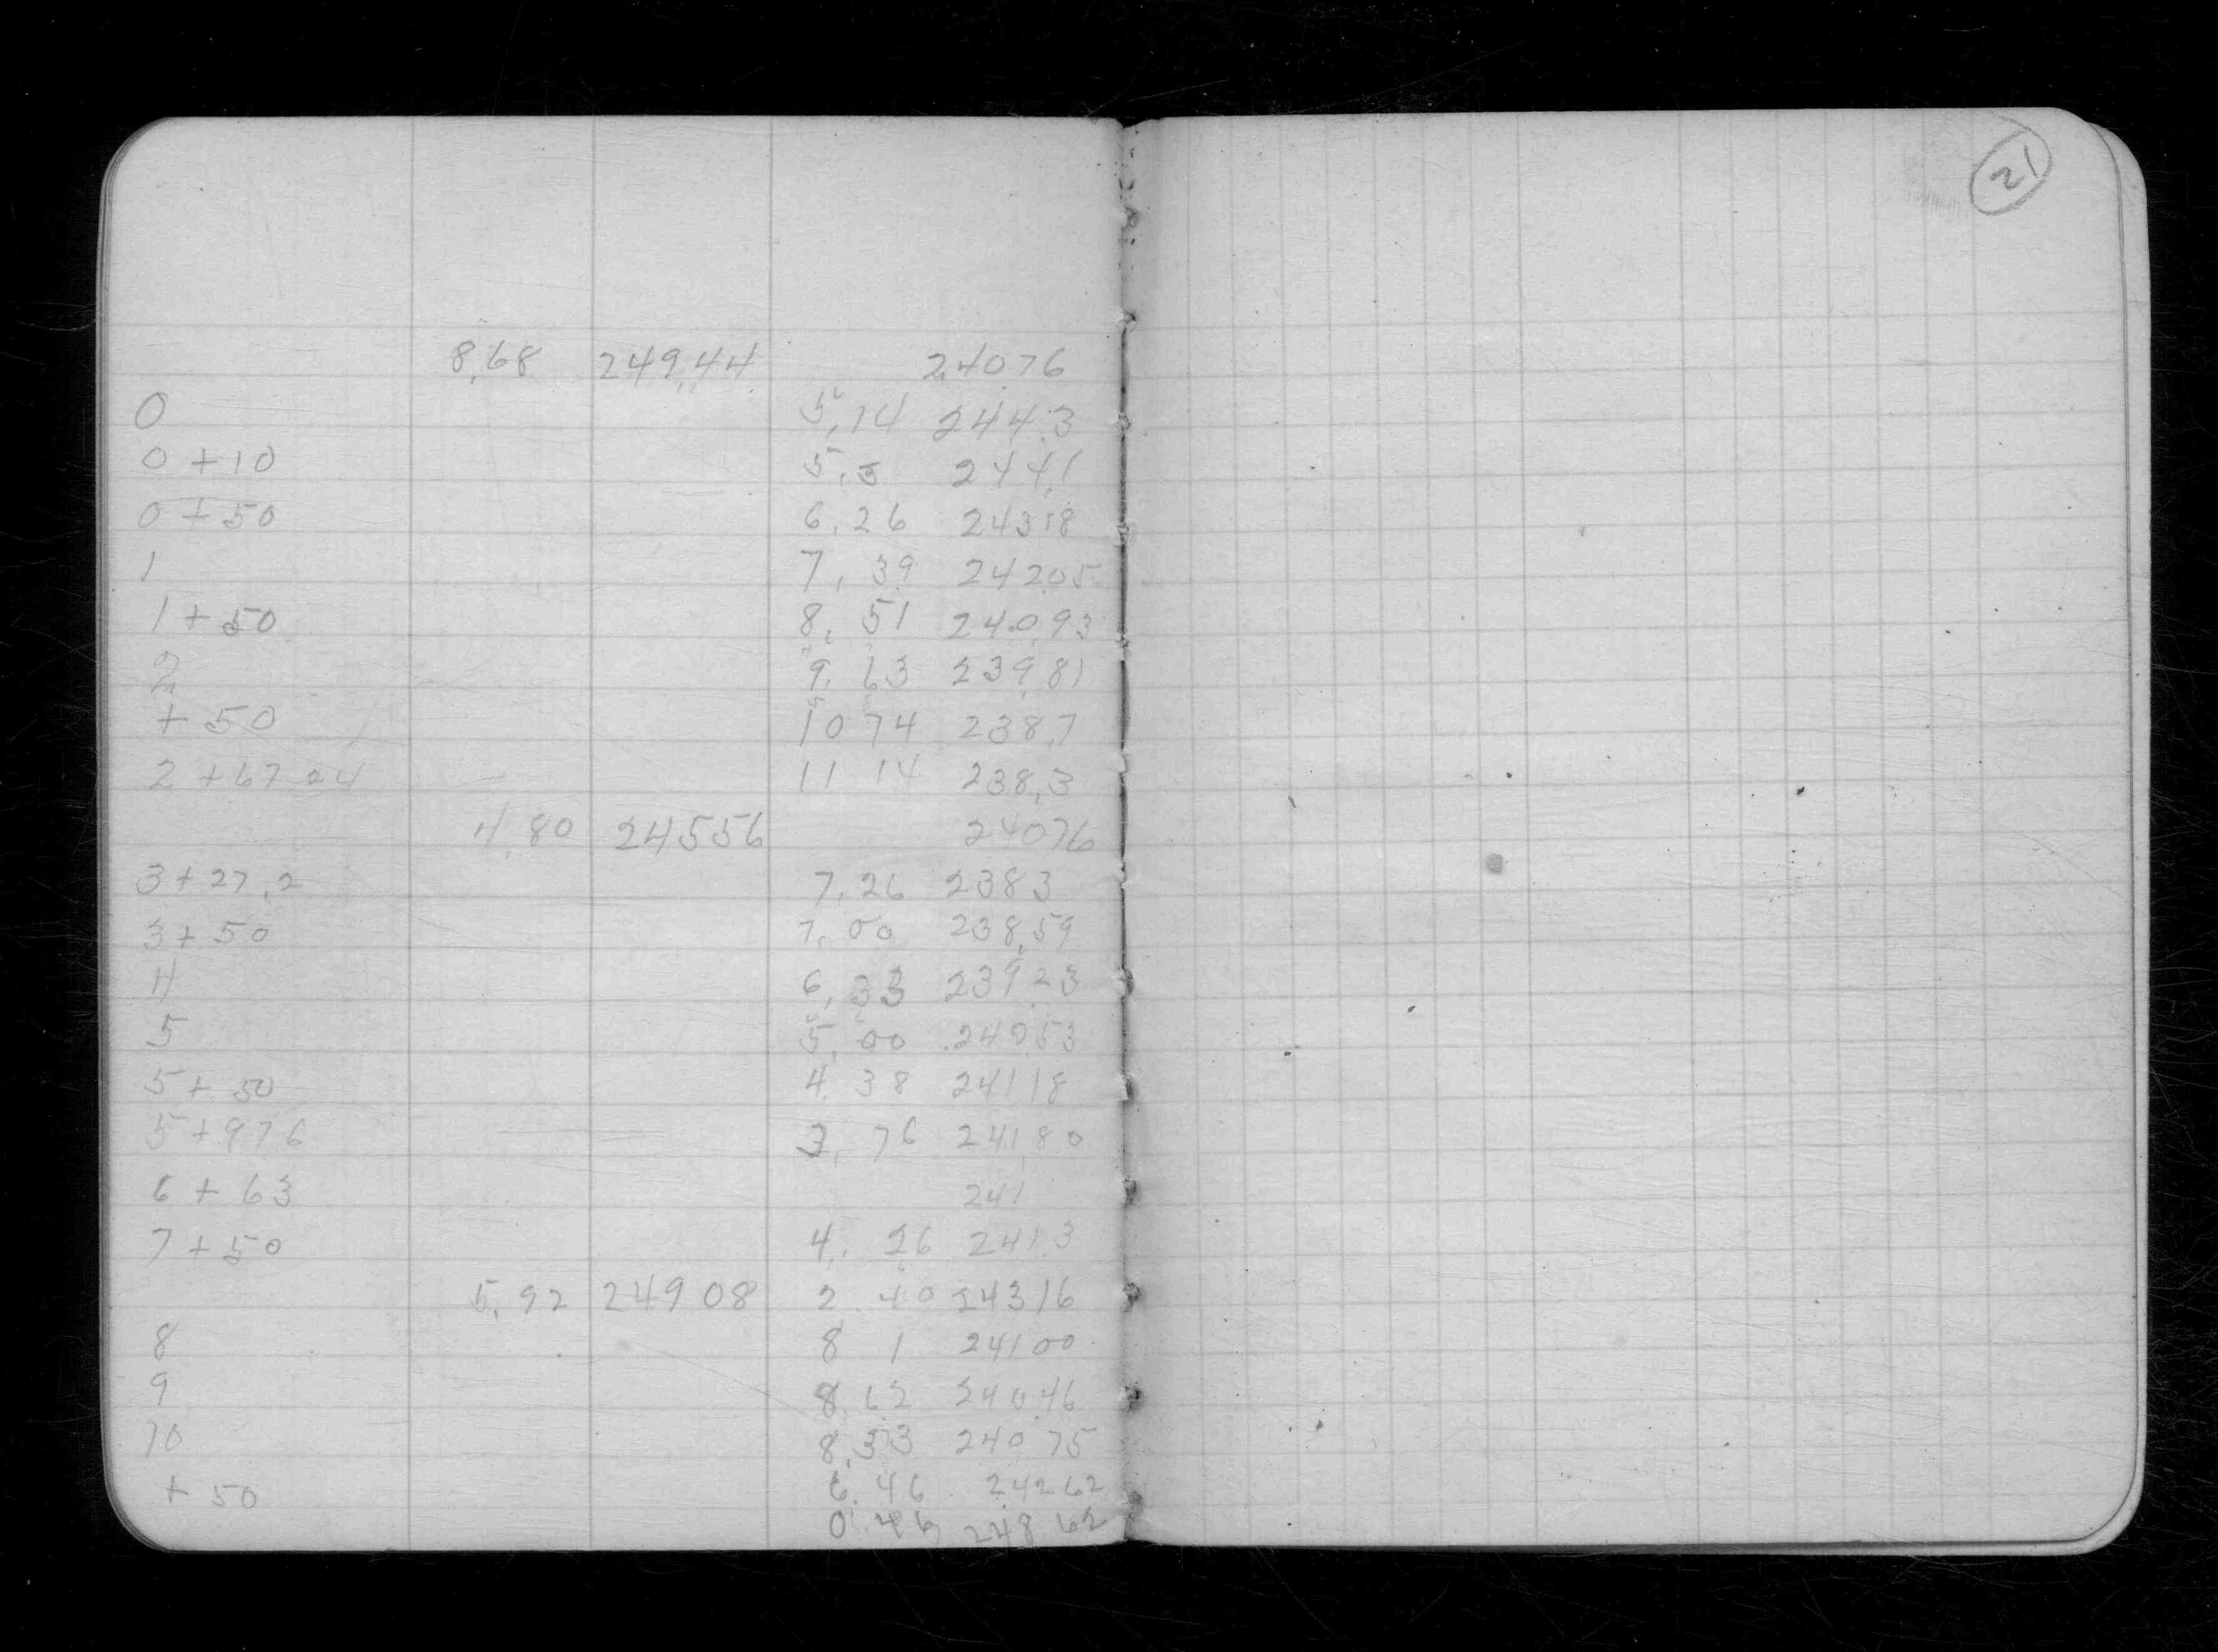 21
8,68 249,44 24076
0 5,14 244.3
0 + 10 5.3 244,1
0 + 50 6.26 24318
1 7, 39 24205
1 + 50 8, 51 240,93
2 9, 63 239,81
+ 50 10 74 238,7
2 + 67 24 11 14 238,3
4,80 24556 24076
3 + 27,2 7.26 2383
3 + 50 7,00 238,59
4 6,33 23923
5 5,00 24053
5 + 50 4.38 24118
5 + 976 3, 76 24180
6 + 63 241
7 + 50 4. 26 241.3
5,92 24908 2 40 24316
8 8 1 24100
9 8.62 24046
10 8,33 24075
+ 50 6.46 24262
0.46 248 62